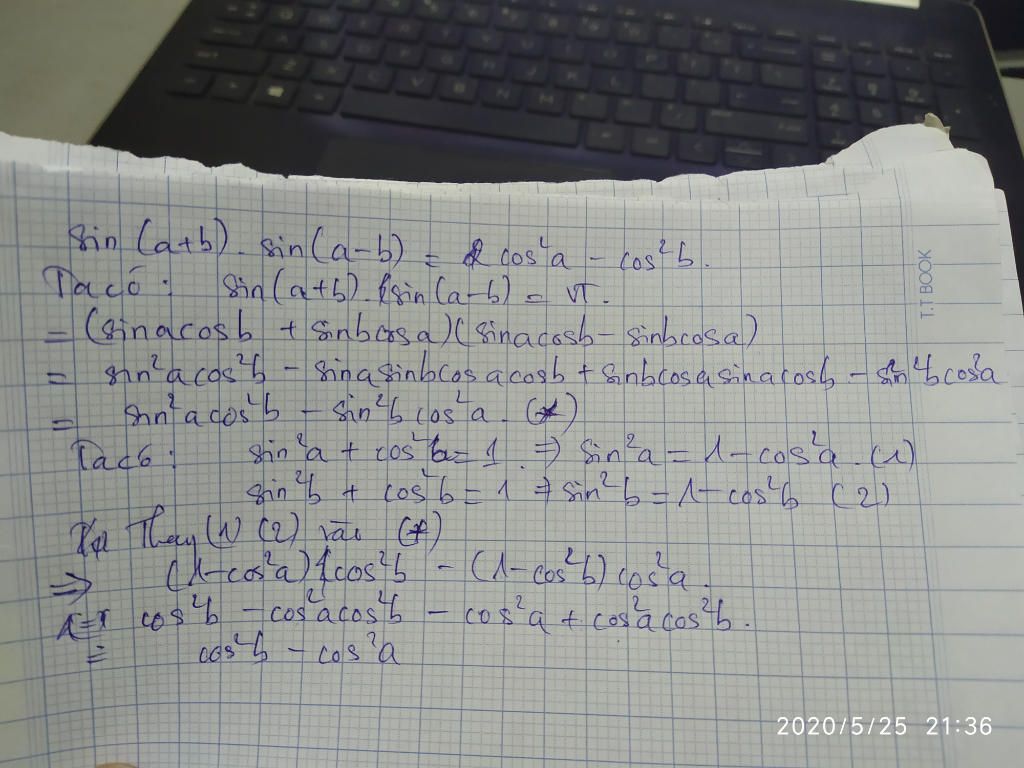 sin(a+b).sin(a-b) = cos²a - cos²b.
Ta có: sin(a+b).sin(a-b) = VT.
= (sinacosb + sinbcosa)(sinacosb - sinbcosa)
= sin²acos²b - sinasinbcosacosb + sinbcosasinacosb - sin²bcos²a
= sin²acos²b - sin²bcos²a. (*)
Ta có: sin²a + cos²a = 1 ⇒ sin²a = 1-cos²a. (1)
sin²b + cos²b = 1 ⇒ sin²b = 1-cos²b (2)
Thay (1) (2) vào (*)
⇒ (1-cos²a)cos²b - (1-cos²b)cos²a.
= cos²b - cos²acos²b - cos²a + cos²acos²b.
= cos²b - cos²a
T.T BOOK
2020/5/25 21:36